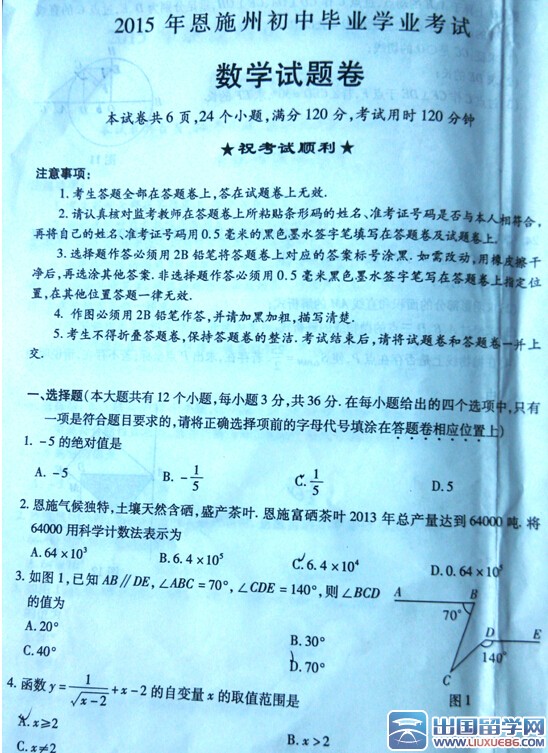 2015 年恩施州初中毕业学业考试
数学试题卷
本试卷共 6 页,24 个小题,满分 120 分,考试用时 120 分钟
★祝考试顺利★
注意事项:
1. 考生答题全部在答题卷上,答在试题卷上无效.
2. 请认真核对监考教师在答题卷上所粘贴条形码的姓名、准考证号码是否与本人相符合,
再将自己的姓名、准考证号码用 0.5 毫米的黑色墨水签字笔填写在答题卷及试题卷上.
3. 选择题作答必须用 2B 铅笔将答题卷上对应的答案标号涂黑. 如需改动,用橡皮擦干
净后,再选涂其他答案. 非选择题作答必须用 0.5 毫米黑色墨水签字笔写在答题卷上指定位
置,在其他位置答题一律无效.
4. 作图必须用 2B 铅笔作答,并请加黑加粗,描写清楚.
5. 考生不得折叠答题卷,保持答题卷的整洁. 考试结束后,请将试题卷和答题卷一并上
交.
一、选择题(本大题共有 12 个小题,每小题 3 分,共 36 分. 在每小题给出的四个选项中,只有
一项是符合题目要求的,请将正确选项前的字母代号填涂在答题卷相应位置上)
1. -5 的绝对值是
A. -5 B. -1/5 C. 1/5 D. 5
2. 恩施气候独特,土壤天然含硒,盛产茶叶. 恩施富硒茶叶 2013 年总产量达到 64000 吨. 将
64000 用科学计数法表示为
A. 64×10³ B. 6.4×10⁵ C. 6.4×10⁴ D. 0.64×10⁵
3. 如图 1,已知 AB∥DE,∠ABC=70°,∠CDE=140°,则∠BCD
的值为
A. 20° B. 30°
C. 40° D. 70°
A B
70°
D E
140°
C
图 1
4. 函数 y=1/√(x-2)+x-2 的自变量 x 的取值范围是
A. x≥2 B. x>2
C. x≠2
出国留学网
www.liuxue86.com